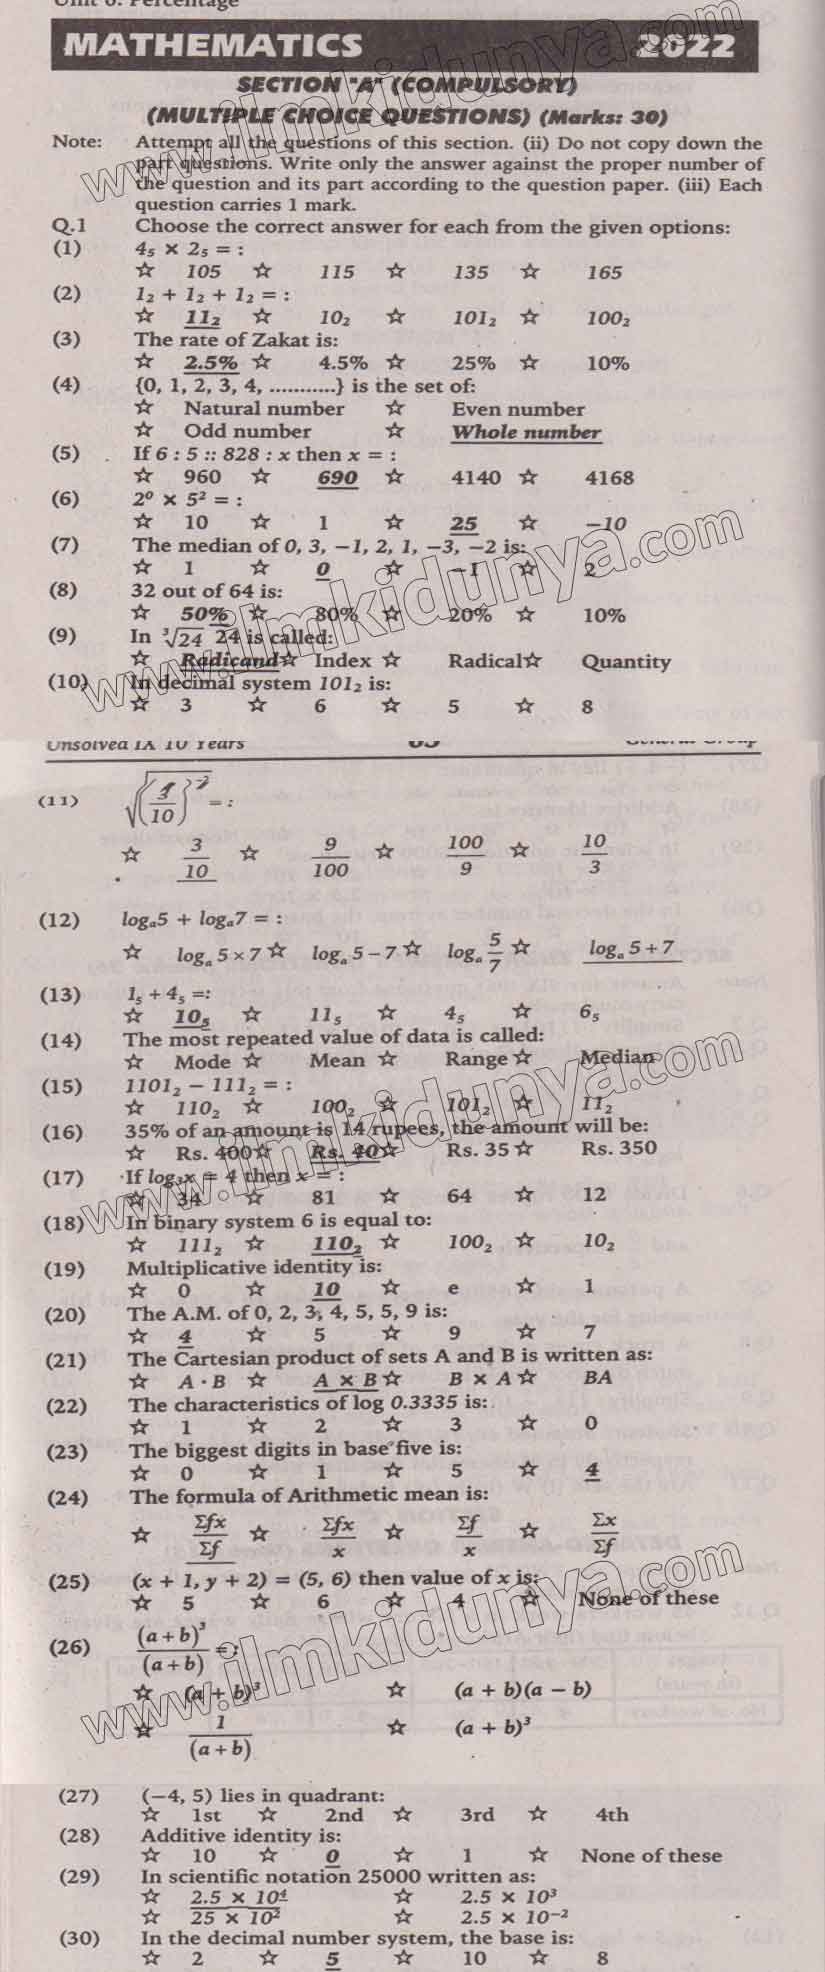 Unit 6: Percentage
MATHEMATICS 2022
SECTION "A" (COMPULSORY)
(MULTIPLE CHOICE QUESTIONS) (Marks: 30)
Note: Attempt all the questions of this section. (ii) Do not copy down the
part questions. Write only the answer against the proper number of
the question and its part according to the question paper. (iii) Each
question carries 1 mark.
Q.1 Choose the correct answer for each from the given options:
(1) 4₅ × 2₅ = :
☆ 105 ☆ 115 ☆ 135 ☆ 165
(2) 1₂ + 1₂ + 1₂ = :
☆ 11₂ ☆ 10₂ ☆ 101₂ ☆ 100₂
(3) The rate of Zakat is:
☆ 2.5% ☆ 4.5% ☆ 25% ☆ 10%
(4) {0, 1, 2, 3, 4, ...........} is the set of:
☆ Natural number ☆ Even number
☆ Odd number ☆ Whole number
(5) If 6 : 5 :: 828 : x then x = :
☆ 960 ☆ 690 ☆ 4140 ☆ 4168
(6) 2⁰ × 5² = :
☆ 10 ☆ 1 ☆ 25 ☆ −10
(7) The median of 0, 3, −1, 2, 1, −3, −2 is:
☆ 1 ☆ 0 ☆ −1 ☆ 2
(8) 32 out of 64 is:
☆ 50% ☆ 80% ☆ 20% ☆ 10%
(9) In ³√24 24 is called:
☆ Radicand ☆ Index ☆ Radical ☆ Quantity
(10) In decimal system 101₂ is:
☆ 3 ☆ 6 ☆ 5 ☆ 8
Unsolved IX 10 Years 63 General Group
(11) √(3/10)⁻² = :
☆ 3/10 ☆ 9/100 ☆ 100/9 ☆ 10/3
(12) logₐ5 + logₐ7 = :
☆ logₐ 5 × 7 ☆ logₐ 5 − 7 ☆ logₐ 5/7 ☆ logₐ 5 + 7
(13) 1₅ + 4₅ =:
☆ 10₅ ☆ 11₅ ☆ 4₅ ☆ 6₅
(14) The most repeated value of data is called:
☆ Mode ☆ Mean ☆ Range ☆ Median
(15) 1101₂ − 111₂ = :
☆ 110₂ ☆ 100₂ ☆ 101₂ ☆ 11₂
(16) 35% of an amount is 14 rupees, the amount will be:
☆ Rs. 400 ☆ Rs. 40 ☆ Rs. 35 ☆ Rs. 350
(17) If log₃x = 4 then x = :
☆ 34 ☆ 81 ☆ 64 ☆ 12
(18) In binary system 6 is equal to:
☆ 111₂ ☆ 110₂ ☆ 100₂ ☆ 10₂
(19) Multiplicative identity is:
☆ 0 ☆ 10 ☆ e ☆ 1
(20) The A.M. of 0, 2, 3, 4, 5, 5, 9 is:
☆ 4 ☆ 5 ☆ 9 ☆ 7
(21) The Cartesian product of sets A and B is written as:
☆ A · B ☆ A × B ☆ B × A ☆ BA
(22) The characteristics of log 0.3335 is:
☆ 1 ☆ 2 ☆ 3 ☆ 0
(23) The biggest digits in base five is:
☆ 0 ☆ 1 ☆ 5 ☆ 4
(24) The formula of Arithmetic mean is:
☆ Σfx/Σf ☆ Σfx/x ☆ Σf/x ☆ Σx/Σf
(25) (x + 1, y + 2) = (5, 6) then value of x is:
☆ 5 ☆ 6 ☆ 4 ☆ None of these
(26) (a + b)³/(a + b) = :
☆ (a + b)³ ☆ (a + b)(a − b)
☆ 1/(a + b) ☆ (a + b)³
(27) (−4, 5) lies in quadrant:
☆ 1st ☆ 2nd ☆ 3rd ☆ 4th
(28) Additive identity is:
☆ 10 ☆ 0 ☆ 1 ☆ None of these
(29) In scientific notation 25000 written as:
☆ 2.5 × 10⁴ ☆ 2.5 × 10³
☆ 25 × 10² ☆ 2.5 × 10⁻²
(30) In the decimal number system, the base is:
☆ 2 ☆ 5 ☆ 10 ☆ 8
www.ilmkidunya.com
www.ilmkidunya.com
www.ilmkidunya.com
www.ilmkidunya.com